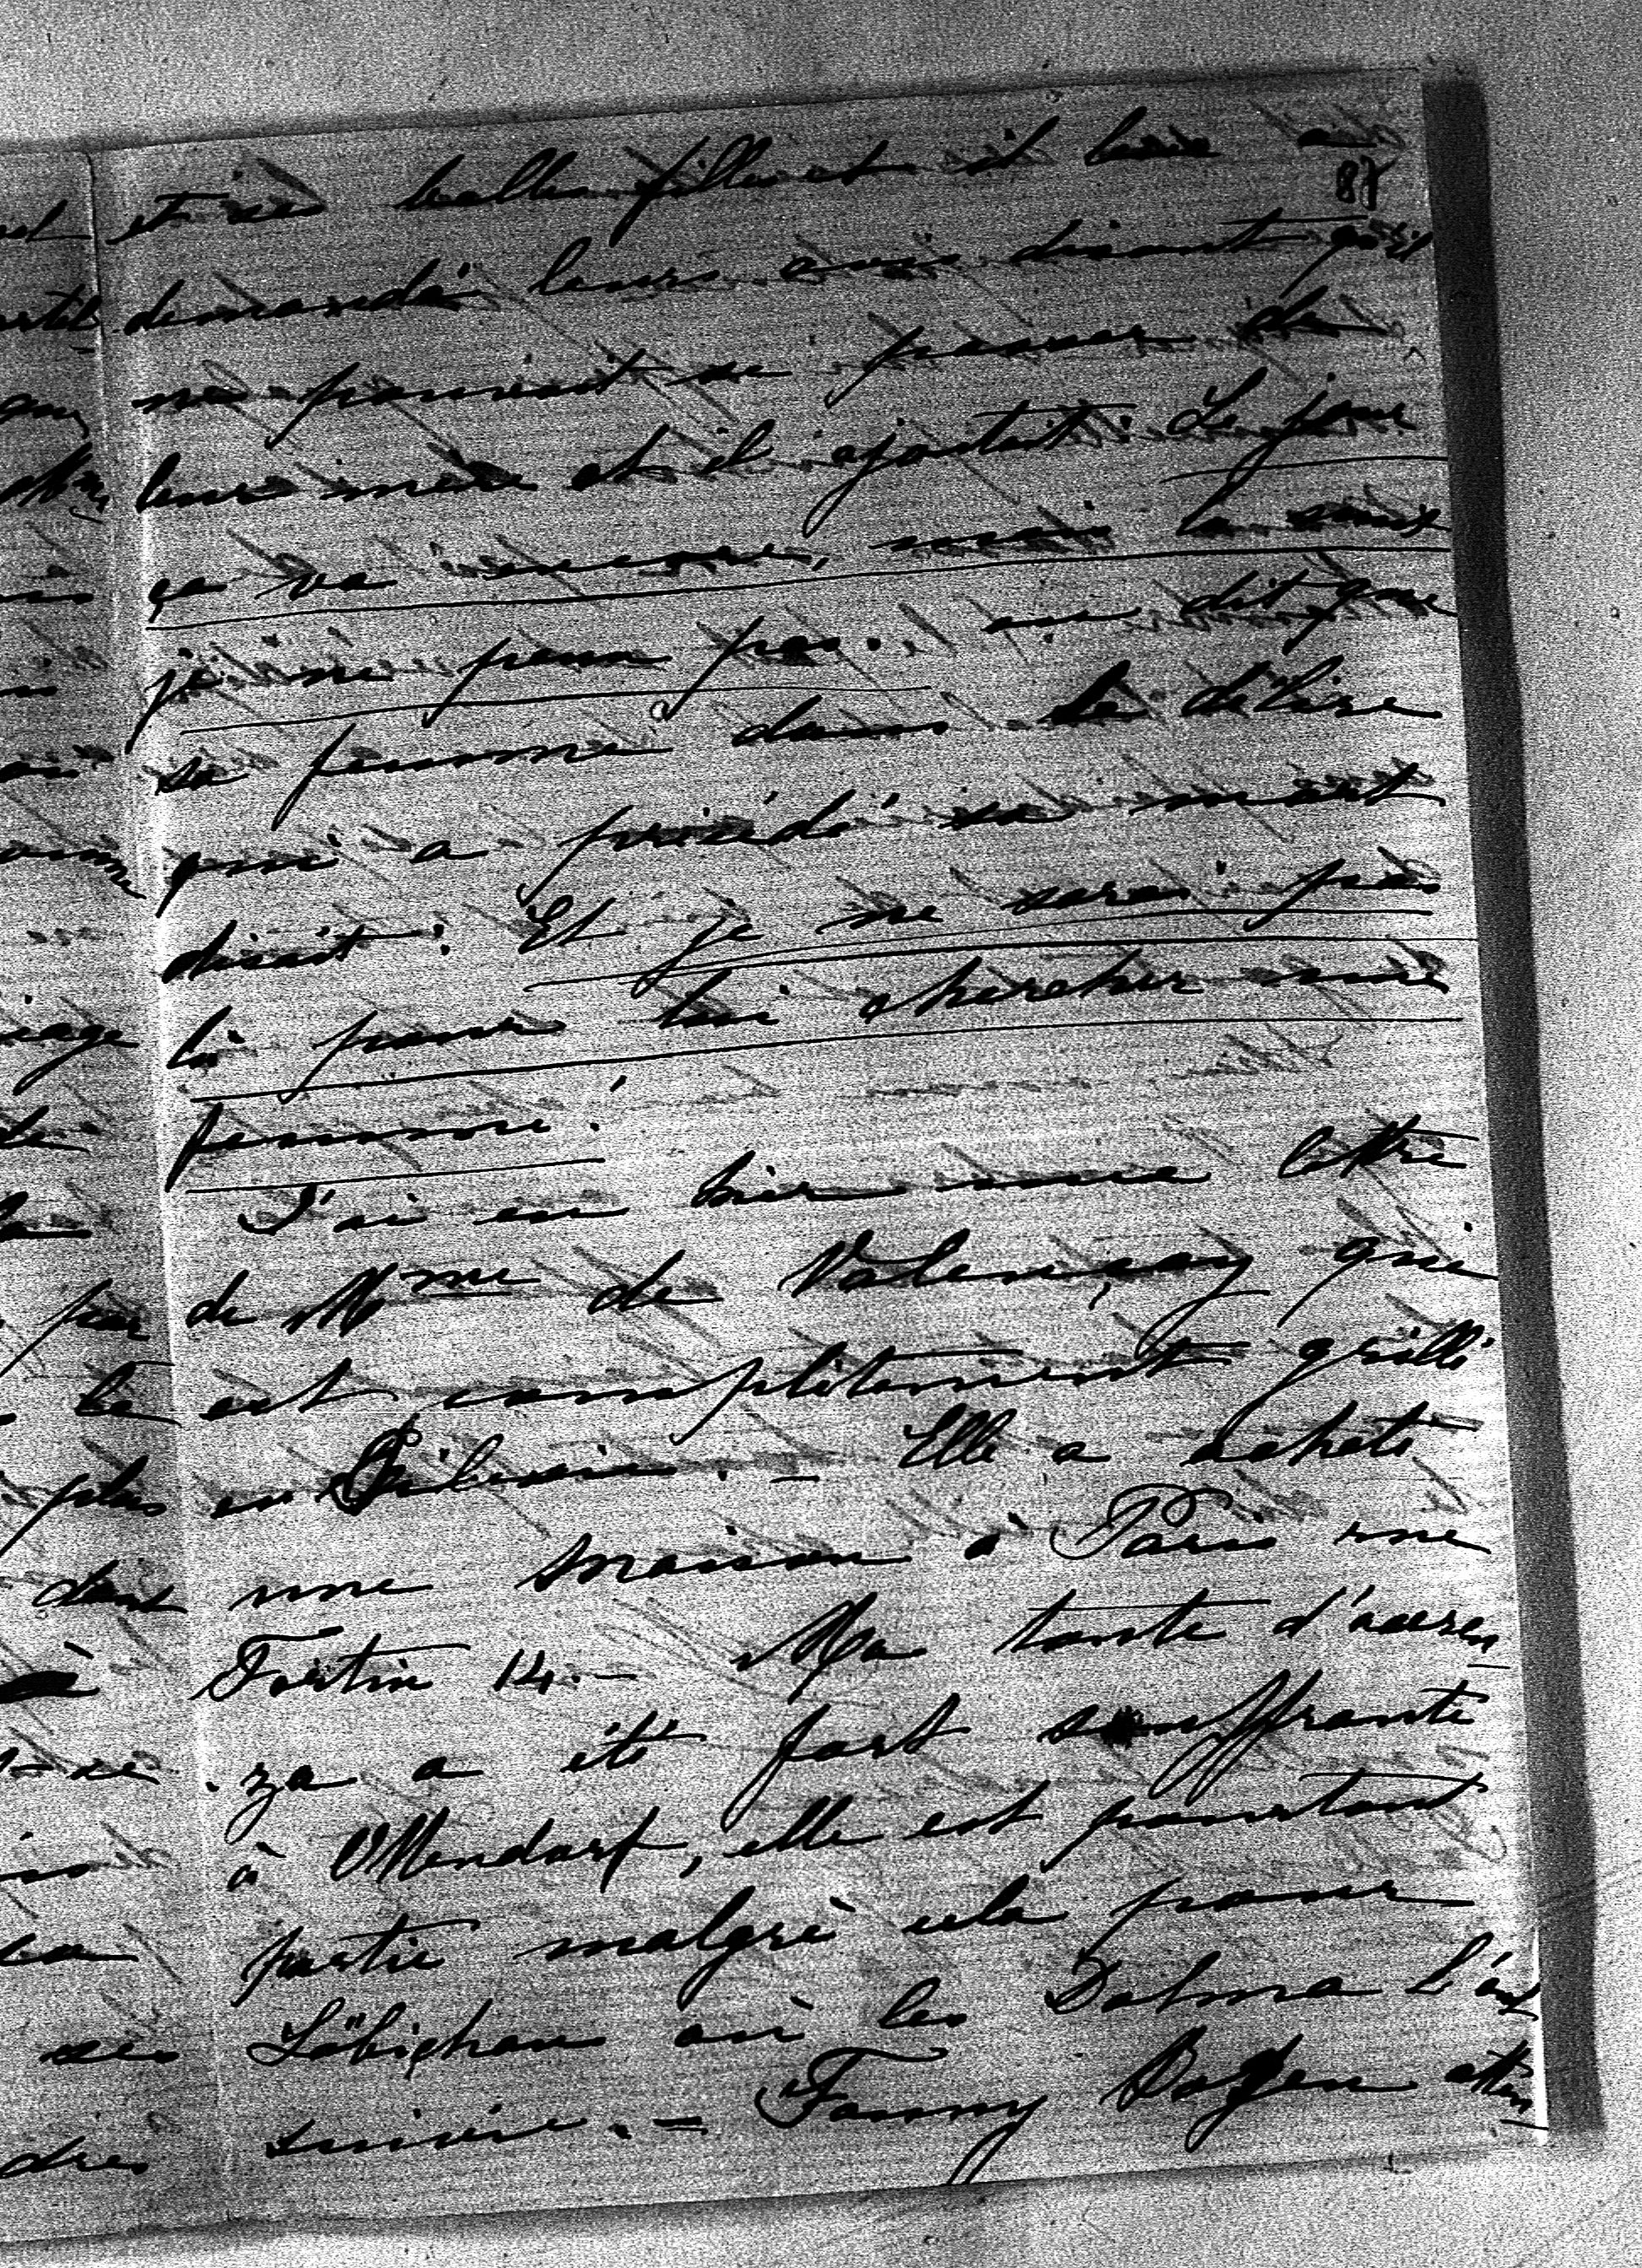 88
et ses belles filles et il leur a
demandé leurs avis disant qu'il
ne pouvait se passer de
leur mère et il ajoutait: Le jour
ça va encore, mais la nuit
je ne peux pas. on dit que
sa femme dans le délire
qui a précédé sa mort
disait: Et je ne serai pas
là pour lui chercher une
femme!
J'ai eu hier une lettre
de Mme de Valençay qui
est complètement grillé
en Silésie. – Elle a acheté
une maison à Paris rue
Fortin 14. – Ma tante d'Aceren
za a été fort souffrante
à Ollendorf, elle est pourtant
partie malgré cela pour
Löbichau où les Dohna l'ont
suivie. – Fanny